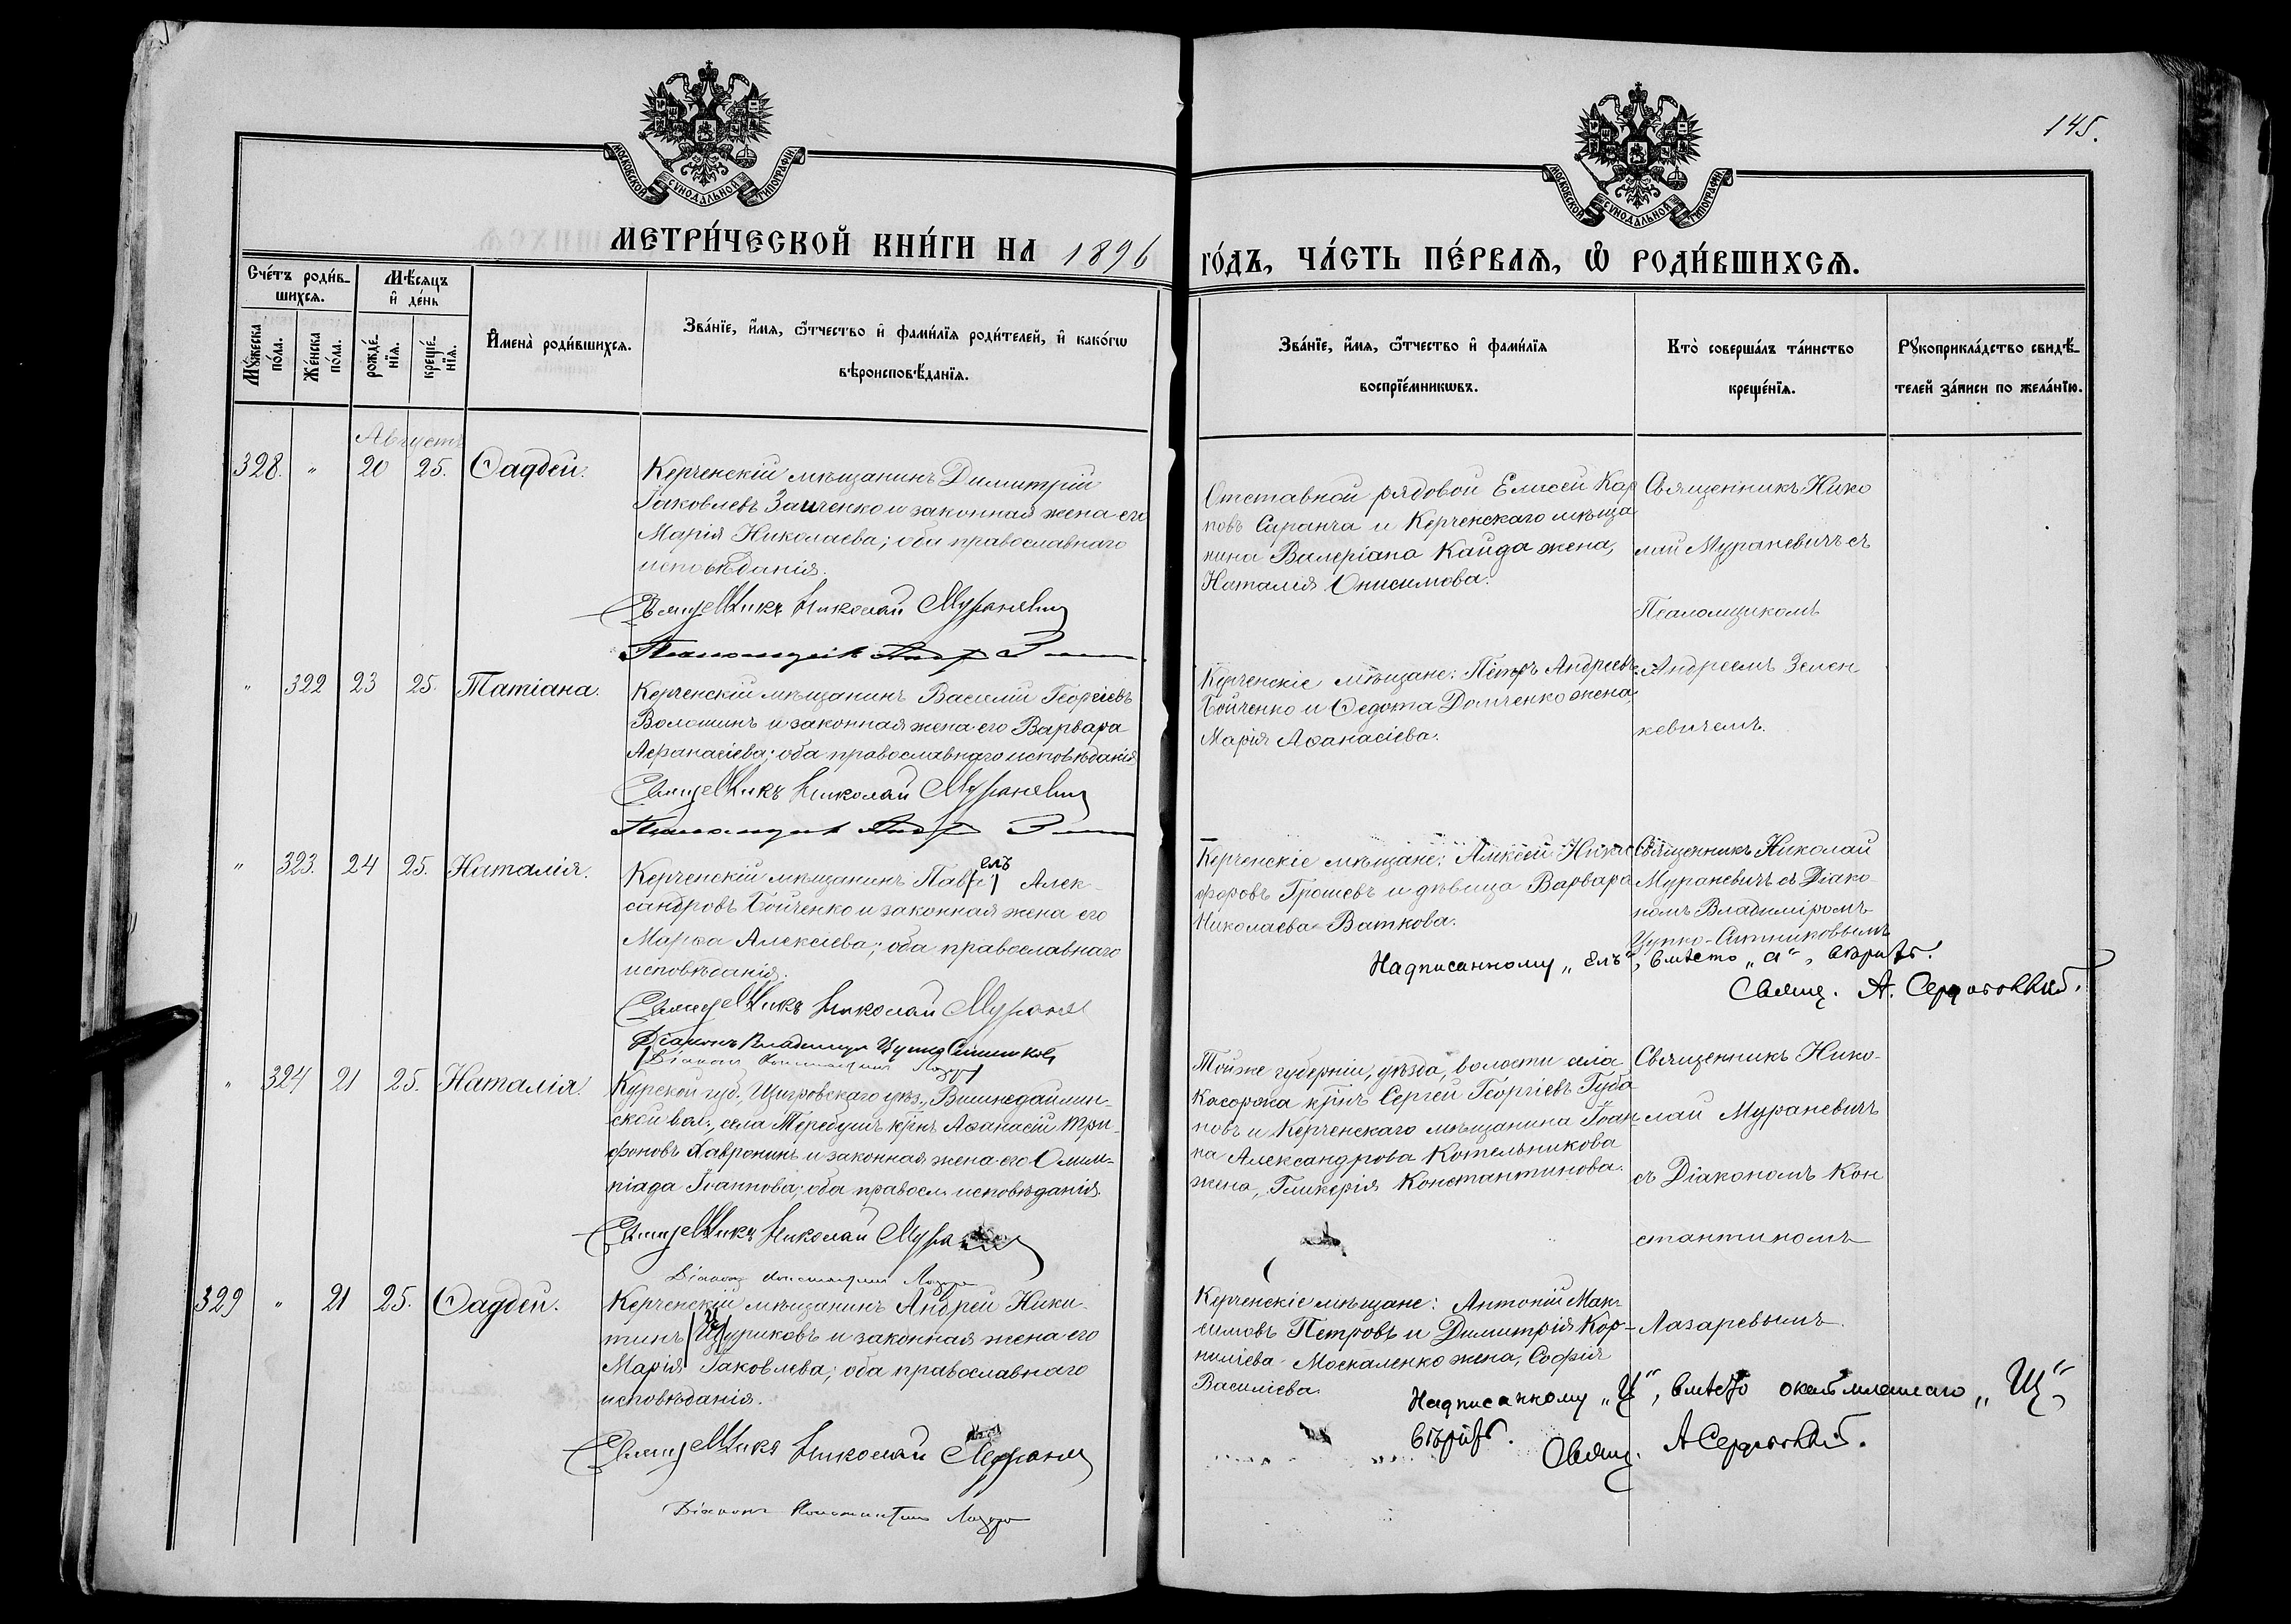 145.
МОСКОВСКОЙ СУНОДАЛЬНОЙ ТИПОГРАФІИ
МОСКОВСКОЙ СУНОДАЛЬНОЙ ТИПОГРАФІИ
МЕТРИ́ЧЕСКОЙ КНИ́ГИ НА 1896
ГО́ДЪ, ЧА́СТЬ ПЕ́РВАѦ, Ѡ РОДИ́ВШИХСѦ.
Сче́тъ роди́в-
шихсѧ.
Мѣ́сѧцъ
и҆ де́нь
Мꙋ́жеска
по́ла.
Же́нска
по́ла.
рожде́-
нїѧ.
креще́-
нїѧ.
И҆мена̀ роди́вшихсѧ.
Зва́нїе, и҆́мѧ, ѻ҆́тчество и҆ фами́лїѧ роди́телей, и҆ како́гѡ
вѣроисповѣ́данїѧ.
Зва́нїе, и҆́мѧ, ѻ҆́тчество и҆ фами́лїѧ
воспрїе́мникѡвъ.
Кто̀ соверша́лъ та́инство
креще́нїѧ.
Рꙋкоприкла́дство свидѣ́-
телей за́писи по жела́нїю.
Августъ
328. " 20 25. Ѳаддей.
Керченскій мѣщанинъ Димитрій
Іаковлевъ Заиченко и законная жена его
Марія Николаева; оба православнаго
исповѣданія.
Священникъ Николай Мураневич
Псаломщик Андр
Отставной рядовой Елисей Кар
повъ Саранча и Керченскаго мѣща
нина Валеріана Кайда жена,
Наталія Онисимова.
Священникъ Нико
лай Мураневичъ съ
Псаломщикомъ
Андреемъ Зелен
кевичемъ.
" 322 23 25. Татіана.
Керченскій мѣщанинъ Василій Георгіевъ
Волошинъ и законная жена его Варвара
Афанасіева; оба православнаго исповѣданія
Священникъ Николай Мураневич
Псаломщик Андр
Керченскіе мѣщане: Петръ Андреевъ
Бойченко и Ѳедота Домченко жена,
Марія Аѳанасіева.
" 323. 24 25. Наталія.
елъ
Керченскій мѣщанинъ Пав Алек-
сандровъ Бойченко и законная жена его
Марѳа Алексіева; оба православнаго
исповѣданія.
Священникъ Николай Муране
Діаконъ Владимиръ Цупко Ситников
Діакон Константин Лазаре
Керченскіе мѣщане: Алексей Ники
форовъ Грошевъ и дѣвица Варвара
Николаева Ваткова.
Священникъ Николай
Мураневичъ съ Діако-
номъ Владиміромъ
Цупко-Ситниковымъ
Надписанному „елъ", вмѣсто „а", вѣрить.
Свящ. А. Сердобольскій.
" 324 21 25. Наталія.
Курской губ., Щигровскаго уѣз., Вышнедаймин-
ской вол., села Теребушъ крѣнъ Аѳанасій Три-
фоновъ Хавронинъ и законная жена его Олим-
піада Іоаннова; оба правосл. исповѣданія.
Священникъ Николай Мура
Діаконъ Константин Лазаре
Тойже губерніи, уѣзда, волости села
Касоржа крнъ Сергей Георгіевъ Губа
новъ и Керченскаго мѣщанина Іоан
на Александрова Котельникова
жена, Гликерія Константинова.
Священникъ Нико-
лай Мураневичъ
съ Діакономъ Кон
стантиномъ
Лазаревымъ.
329 " 21 25. Ѳаддей.
Керченскій мѣщанинъ Андрей Ники-
тинъ Цуриковъ и законная жена его
Марія Іаковлева; оба православнаго
исповѣданія.
Священникъ Николай Муране
Діаконъ Константинъ Лазаре
Керченскіе мѣщане: Антоній Мак-
симовъ Петровъ и Димитрія Кор-
ниліева Москаленко жена, Софія
Василіева.
Надписанному „Ц", вмѣсто „Щ"
вѣрить.
Свящ. А Сердобольскій.